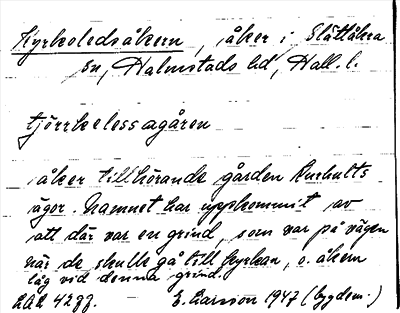 Kyrkoledsåkern, åker i Slättåkra
sn, Halmstads hd, Hall. l.
tjörrkelessagåren
åker tillhörande gården
ägor. Namnet har uppkommit av
att där var en grind, som var på vägen
när de skulle gå till kyrkan, o. åkern
låg vid denna grind.
E. Larsson 1947 (bygdem.)